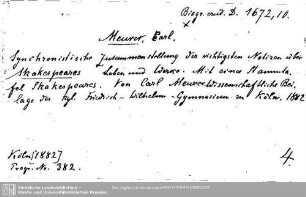 Biogr. erud. D. 1672,10.
x
Meurer, Carl.
Synchronistische Zusammenstellung der wichtigsten Notizen über
Shakespeares Leben und Werke. Mit einer Stammta-
fel Shakespeares. Von Carl Meurer. Wissenschaftliche Bei-
lage des Kgl. Friedrich-Wilhelm-Gymnasium zu Köln, 1882
Köln [1882]
Progr. No. 382.
4.